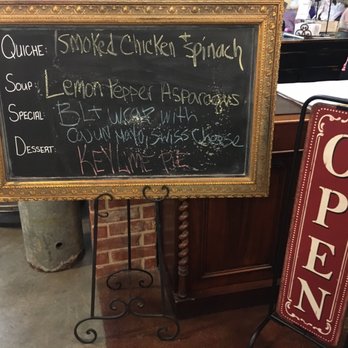 QUICHE: Smoked Chicken + Spinach
SOUP: Lemon Pepper Asparagus
SPECIAL: BLT wrap with
cajun mayo, swiss cheese
DESSERT: KEY LIME PIE
OPEN